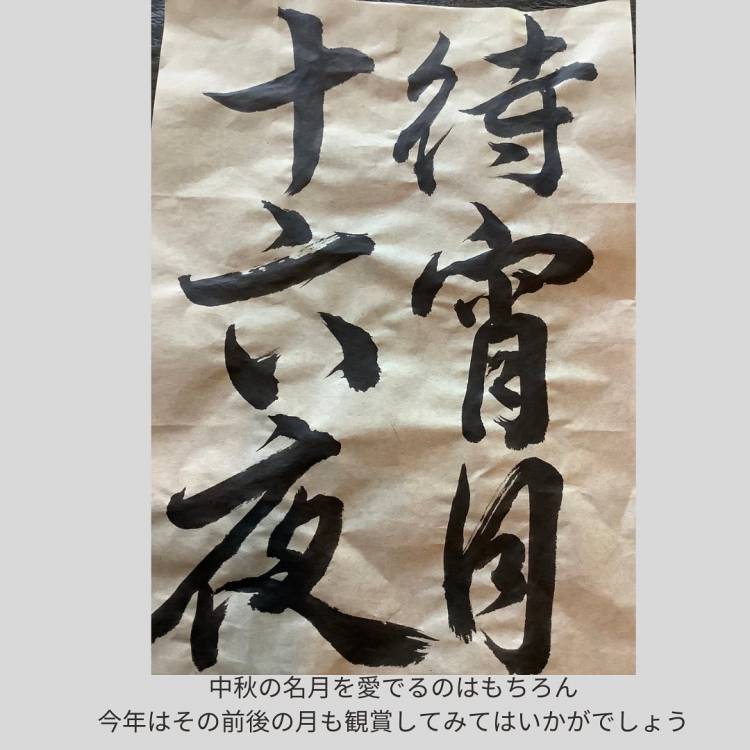 待宵月
十六夜
中秋の名月を愛でるのはもちろん
今年はその前後の月も観賞してみてはいかがでしょう